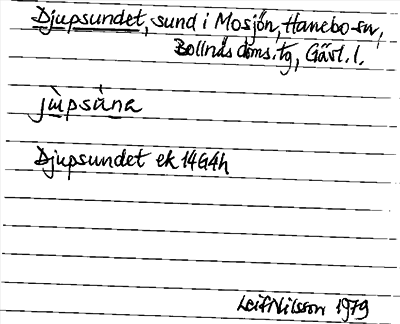 Djupsundet, sund i Mosjön, Hanebo sn,
Bollnäs doms. tg, Gävl. l.
jùpsùna
Djupsundet ek 14G4h
Leif Nilsson 1979